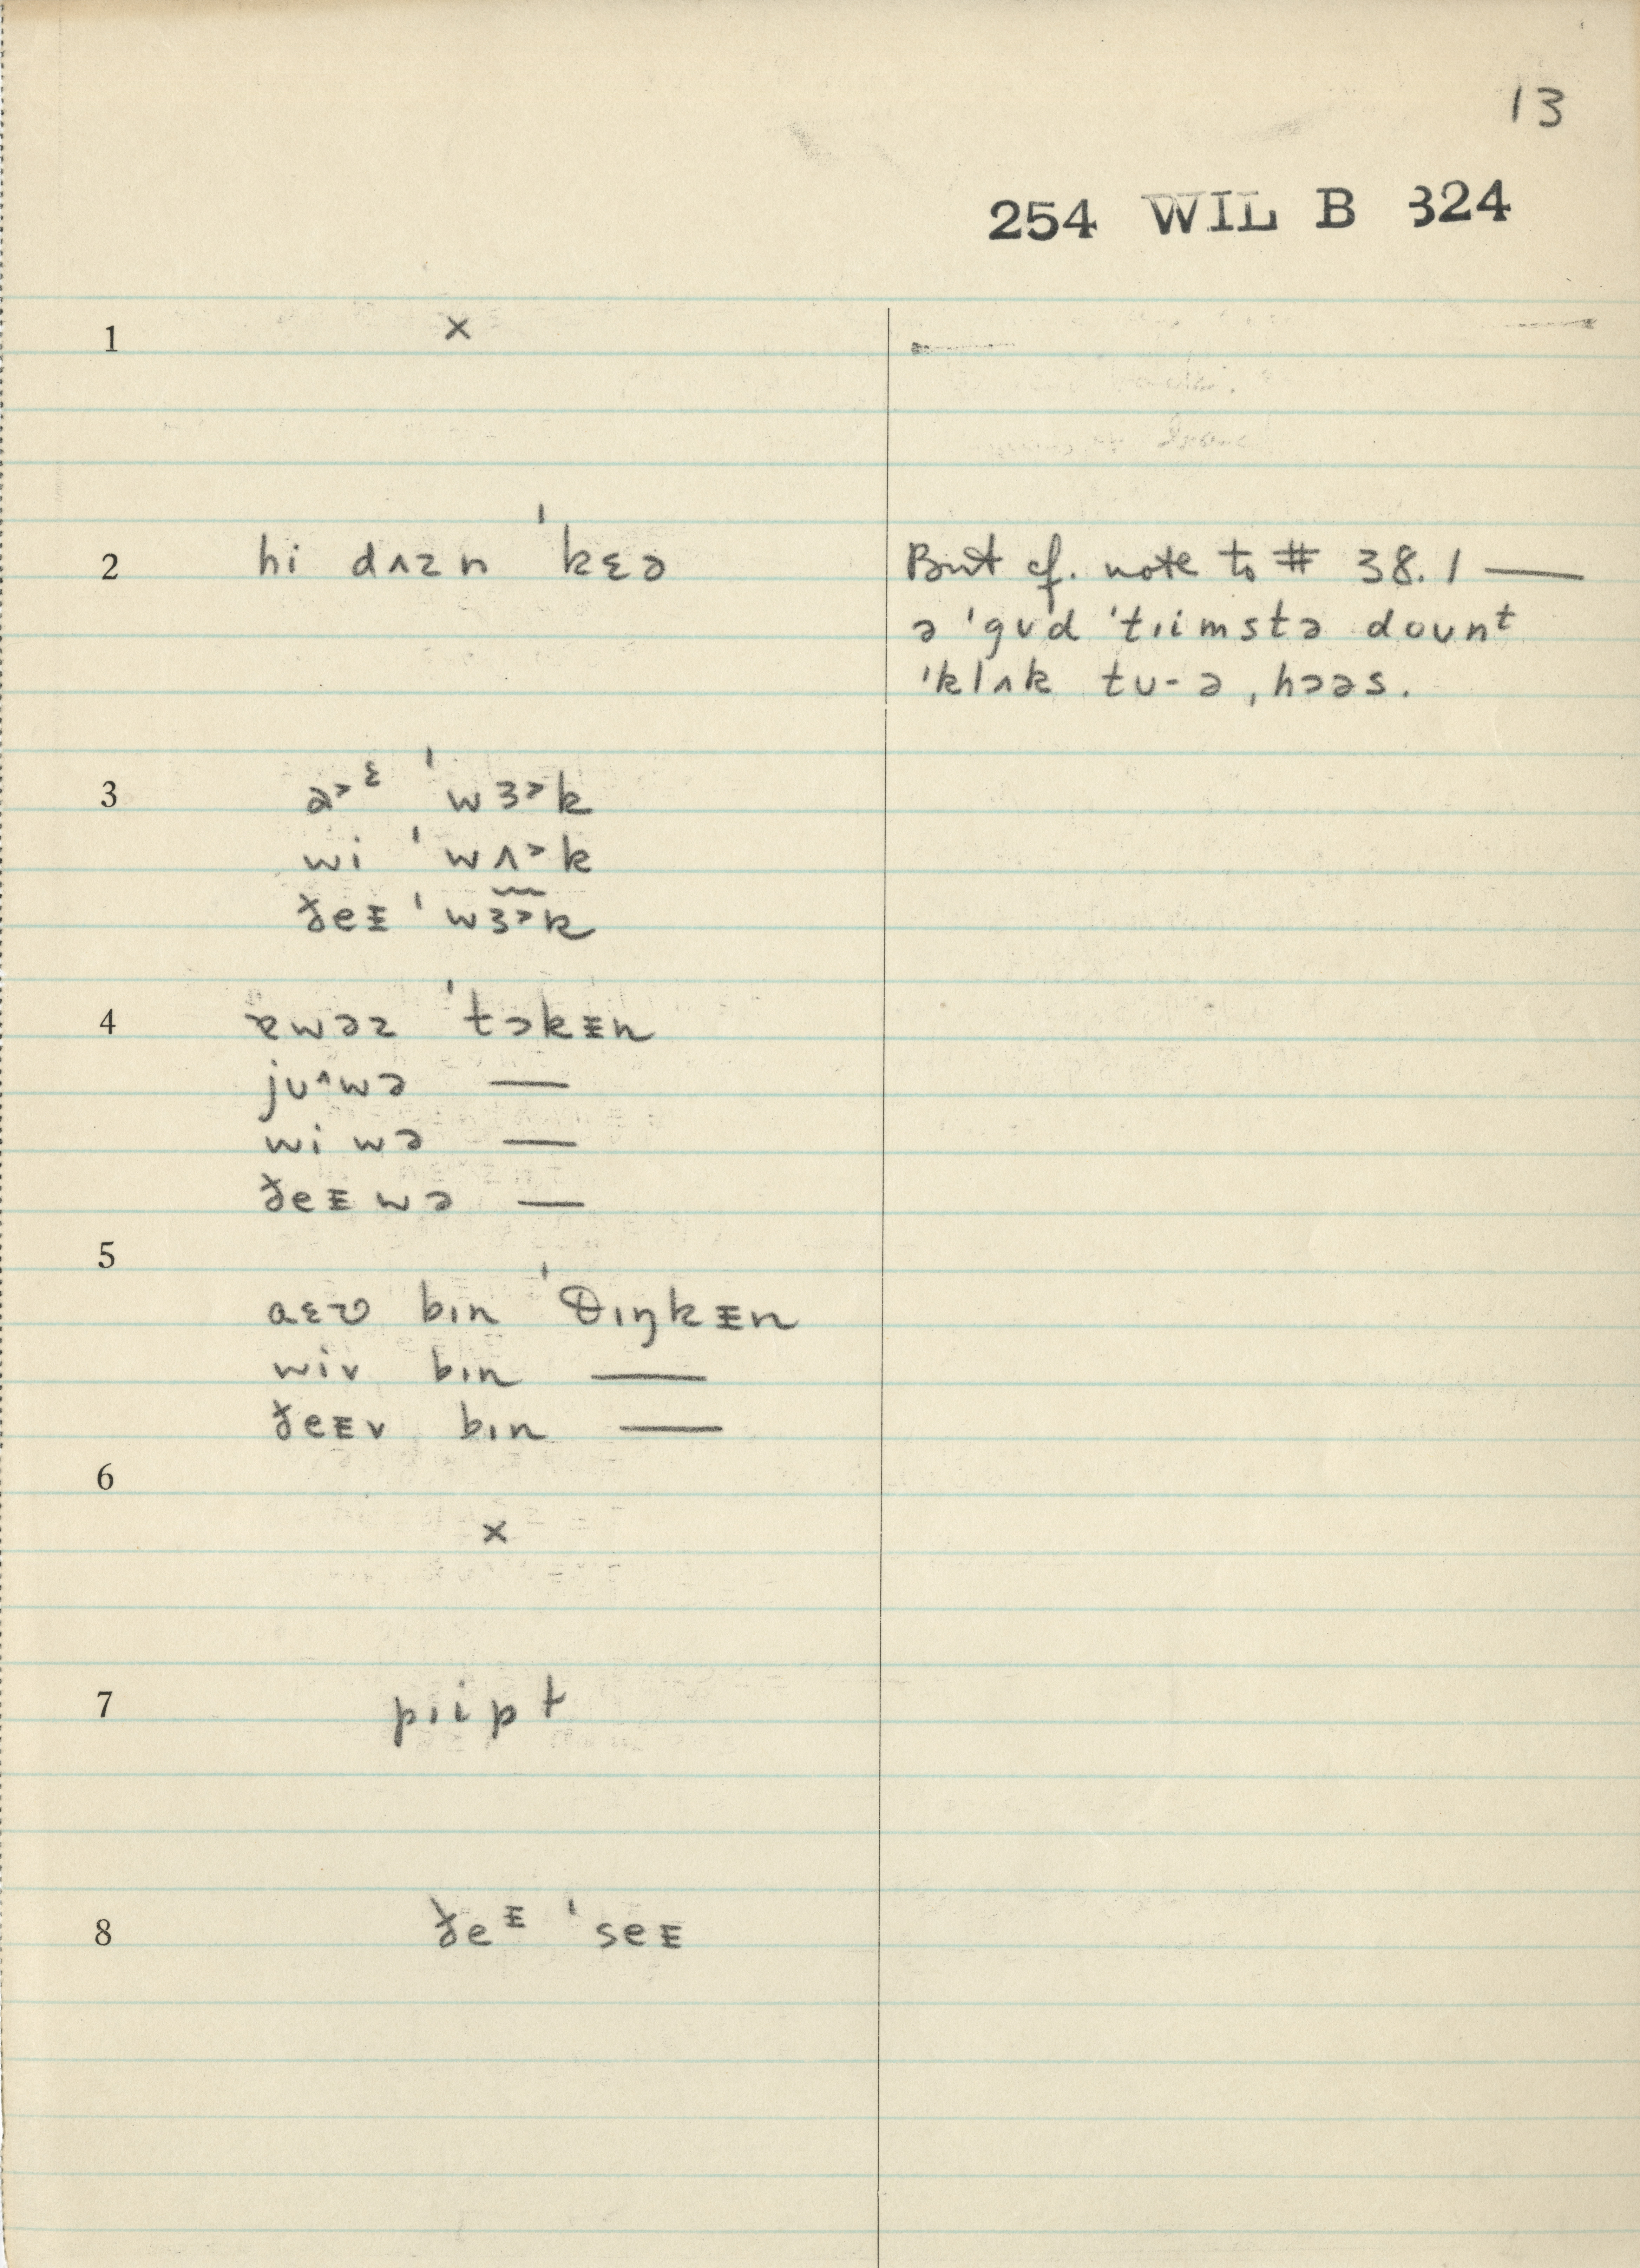 13
254 WIL B 324
1 ×
2 hi dʌzn ˈkɛə
But cf. note to # 38.1 —
ə ˈgʊd ˈtɪimstə dount
ˈklʌk tʊ-ə ˌhɔəs.
3 a˃ᵋ ˈwɜ˃k
wi ˈwʌ˃k
ðeᵻ ˈwɜ˃k
4 ɐwəz ˈtɔkᵻn
jʊ^wə —
wi wə —
ðeᵻ wə —
5
aɛv bɪn ˈθɪŋkᵻn
wiv bɪn —
ðeᵻv bɪn —
6
×
7 pɪipt
8 ðeᵻ ˈseᵻ